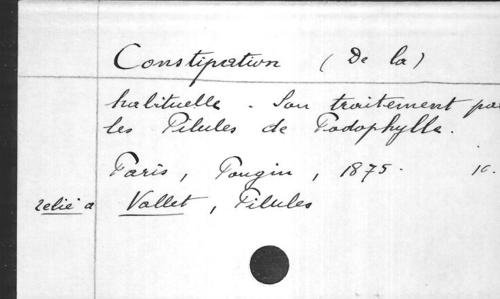 Constipation (De la)
habituelle. Son traitement par
les Pilules de Podophylle.
Paris, Pougin, 1875. in.
relié à Vallet, Pilules